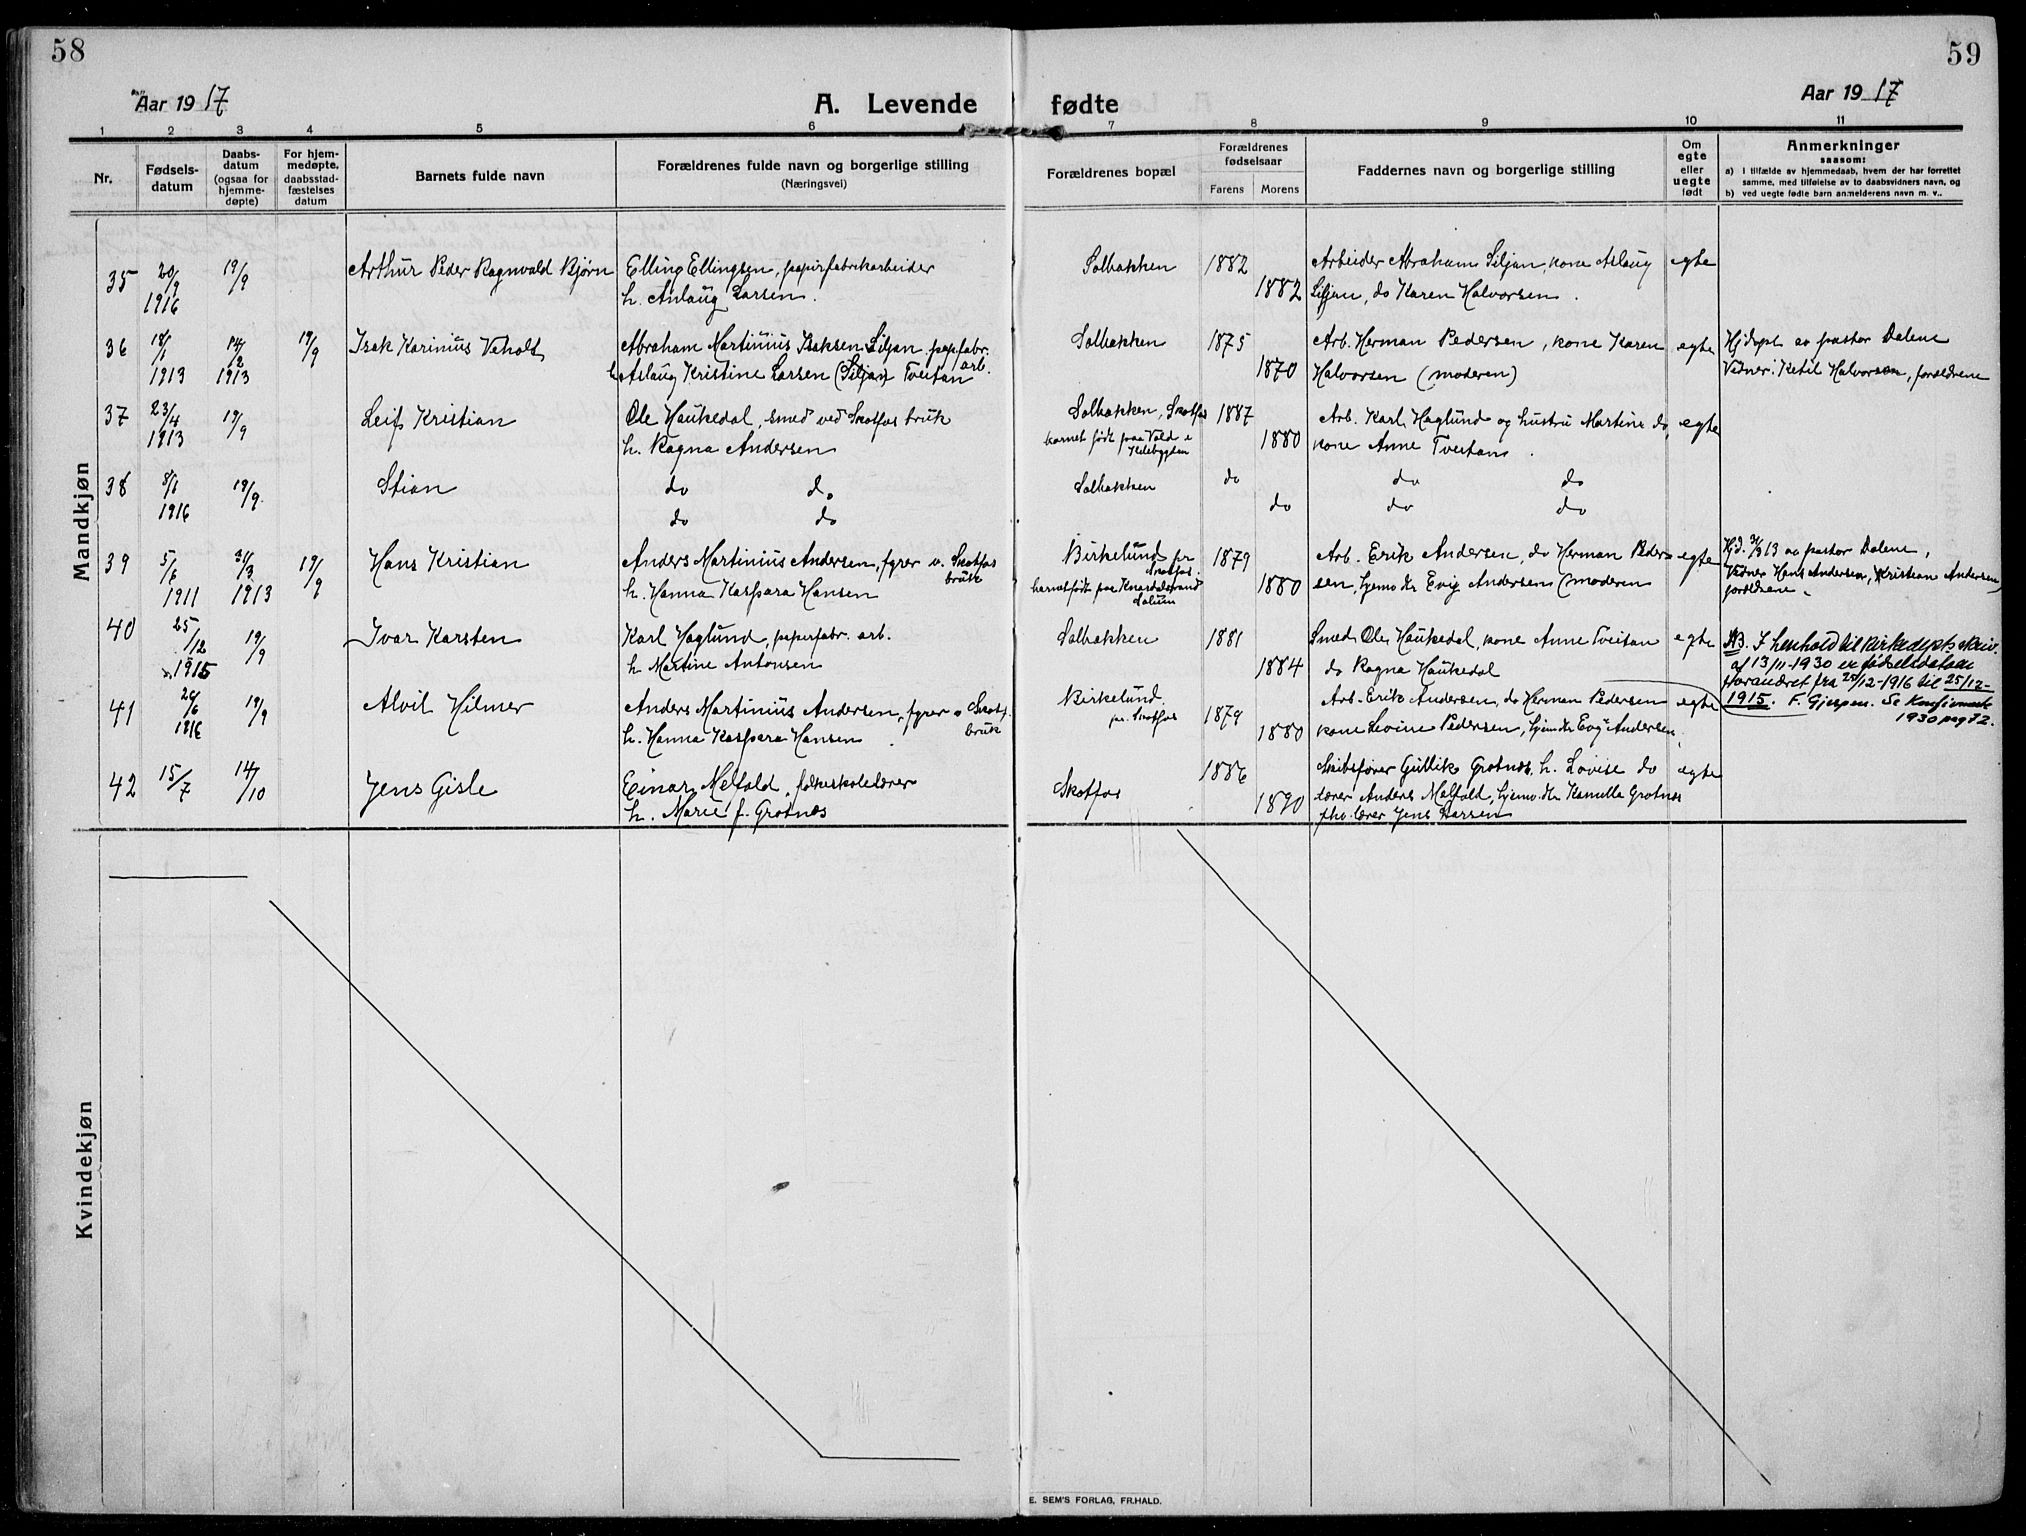 58
Aar 1917
A. Levende
1 2 3 4 5 6
Nr.
Fødsels-
datum
Daabs-
datum
(ogsaa for
hjemme-
døpte)
For hjem-
medøpte,
daabsstad-
fæstelses
datum
Barnets fulde navn
Forældrenes fulde navn og borgerlige stilling
(Næringsvei)
Mandkjøn
35 20/9 19/9 Arthur Peder Ragnvald Bjørn Elling Ellingsen, papirfabrikarbeider
1916 h. Anlaug Larsen.
36 18/1 14/2 19/9 Isak Karinius Veholt Abraham Martinius Isaksen Siljan, papfabr.
arb.
1913 1913 h. Aslaug Kristine Larsen (Siljan) Tveitan
37 23/4 19/9 Leif Kristian Ole Haukedal, smed ved Skotfos bruk
1913 h. Ragna Andersen
38 8/1 19/9 Stian do do
1916 do do
39 5/6 31/3 19/9 Hans Kristian Anders Martinius Andersen, fyrer v. Skotfos
bruk
1911 1913 h. Hanna Kaspara Hansen
40 25/12 19/9 Ivar Karsten Karl Haglund, papirfabr. arb.
1915 h Martine Antonsen
41 26/6 19/9 Alvil Hilmer Anders Martinius Andersen, fyrer v Skotf.
bruk
1916 h. Hanna Kaspara Hansen
42 15/7 14/10 Jens Gisle Einar Melfald, folkeskolelærer
h. Marie f. Grotnæs
Kvindekjøn
59
fødte
Aar 1917
7 8 9 10 11
Forældrenes bopæl
Forældrenes
fødselsaar
Farens Morens
Faddernes navn og borgerlige stilling
Om
egte
eller
uegte
født
Anmerkninger
saasom:
a) i tilfælde av hjemmedaab, hvem der har forrettet
samme, med tilføielse av to daabsvidners navn, og
b) ved uegte fødte barn anmelderens navn m. v..
Solbakken 1882 Arbeider Abraham Siljan, kone Aslaug egte
1882 Siljan, do Karen Halvorsen.
Solbakken 1875 Arb. Herman Pedersen, kone Karen egte Hjdøpt av pastor Dalene
1870 Halvorsen (moderen) Vidner: Ketil Halvorsen, forældrene
Solbakken, Skotfos 1887 Arb. Karl Haglund og hustru Martine do, egte
barnet født paa Vold i
Kilebygden
1880 kone Anne Tveitan.
Solbakken do do do
do do do
Birkelund pr 1879 Arb. Erik Andersen, do Herman Peder- egte Hjd. 31/3 13 av pastor Dalene,
Skotfos.
barnet født paa Knardalstrand
Solum
1880 sen, hjemv dr Evig Andersen (moderen Vidner Hans Andersen, Kristian Andersen,
forældrene.
Solbakken 1881 Smed Ole Haukedal, kone Anne Tveitan egte NB. I henhold til kirkedepts skriv.
1884 do Ragna Haukedal af 13/11-1930 er fødselsdatoen
forandret fra 25/12-1916 til 25/12-
1915. F. Gjerpen. Se Konfirmerte
1930 pag 72.
Birkelund
pr. Skotfos 1879 Arb. Erik Andersen, do Herman Pedersen egte
1880 kone Lovine Pedersen, hjemv dr Evig Andersen,
Skotfos 1886 Skibsfører Gullik Grotnæs, h. Lovise do egte
1890 lærer Anders Melfald, hjemv. dtr Kamilla Grotnæs
fhv. lærer Jens Larsen
E. SEM'S FORLAG, FR.HALD.